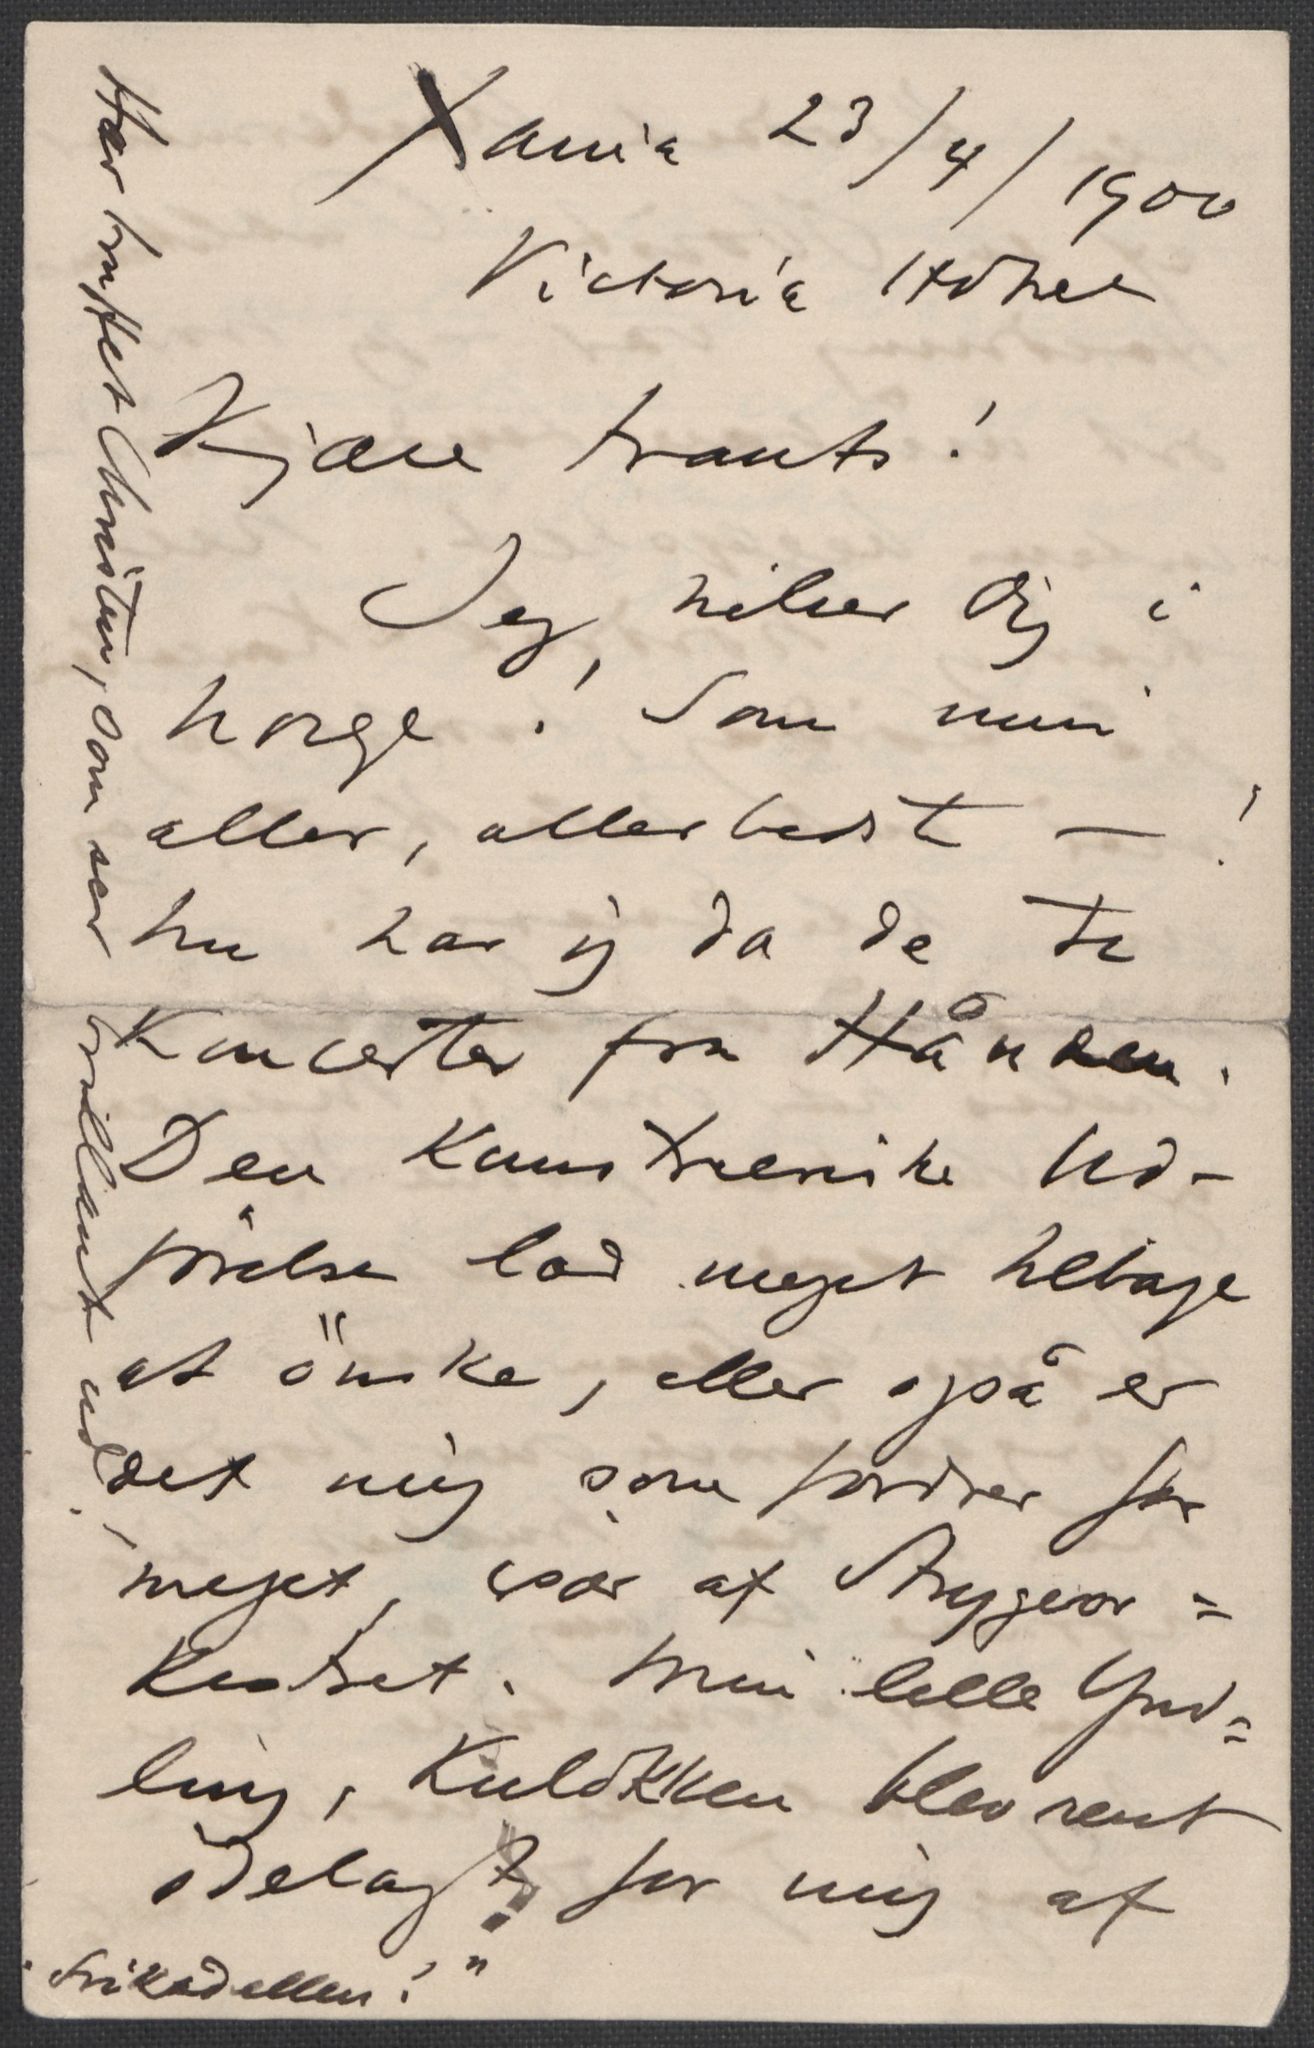 Xania 23/4/1900
Victoria Hôtel
Kjære Frants!
Jeg hilser Dig i
Norge! Som min
aller, allerbedst —!
Nu har jeg da de to
Koncerter fra Hånden.
Den kunstneriske Ud-
førelse lod meget tilbage
at önske, eller også er
det mig som fordrer for
meget, især af Strygeor=
kestret. Min lille Ynd=
ling, Kulokken blev rent
ödelagt for mig af
"Frikadellen!"
Har truffet Christen, som ser brilliant ud.